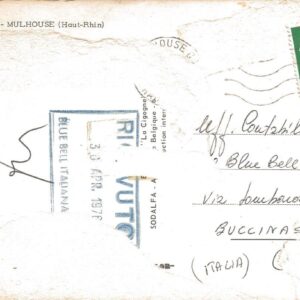 - MULHOUSE (Haut-Rhin)
HOUSE
"La Cigogne
Belgique -
uction inter
SODALFA - A
RI VUTO
30 APR. 1976
BLUE BELL ITALIANA
Uff.
Blue Bell
Via
BUCCINAS
(ITALIA)